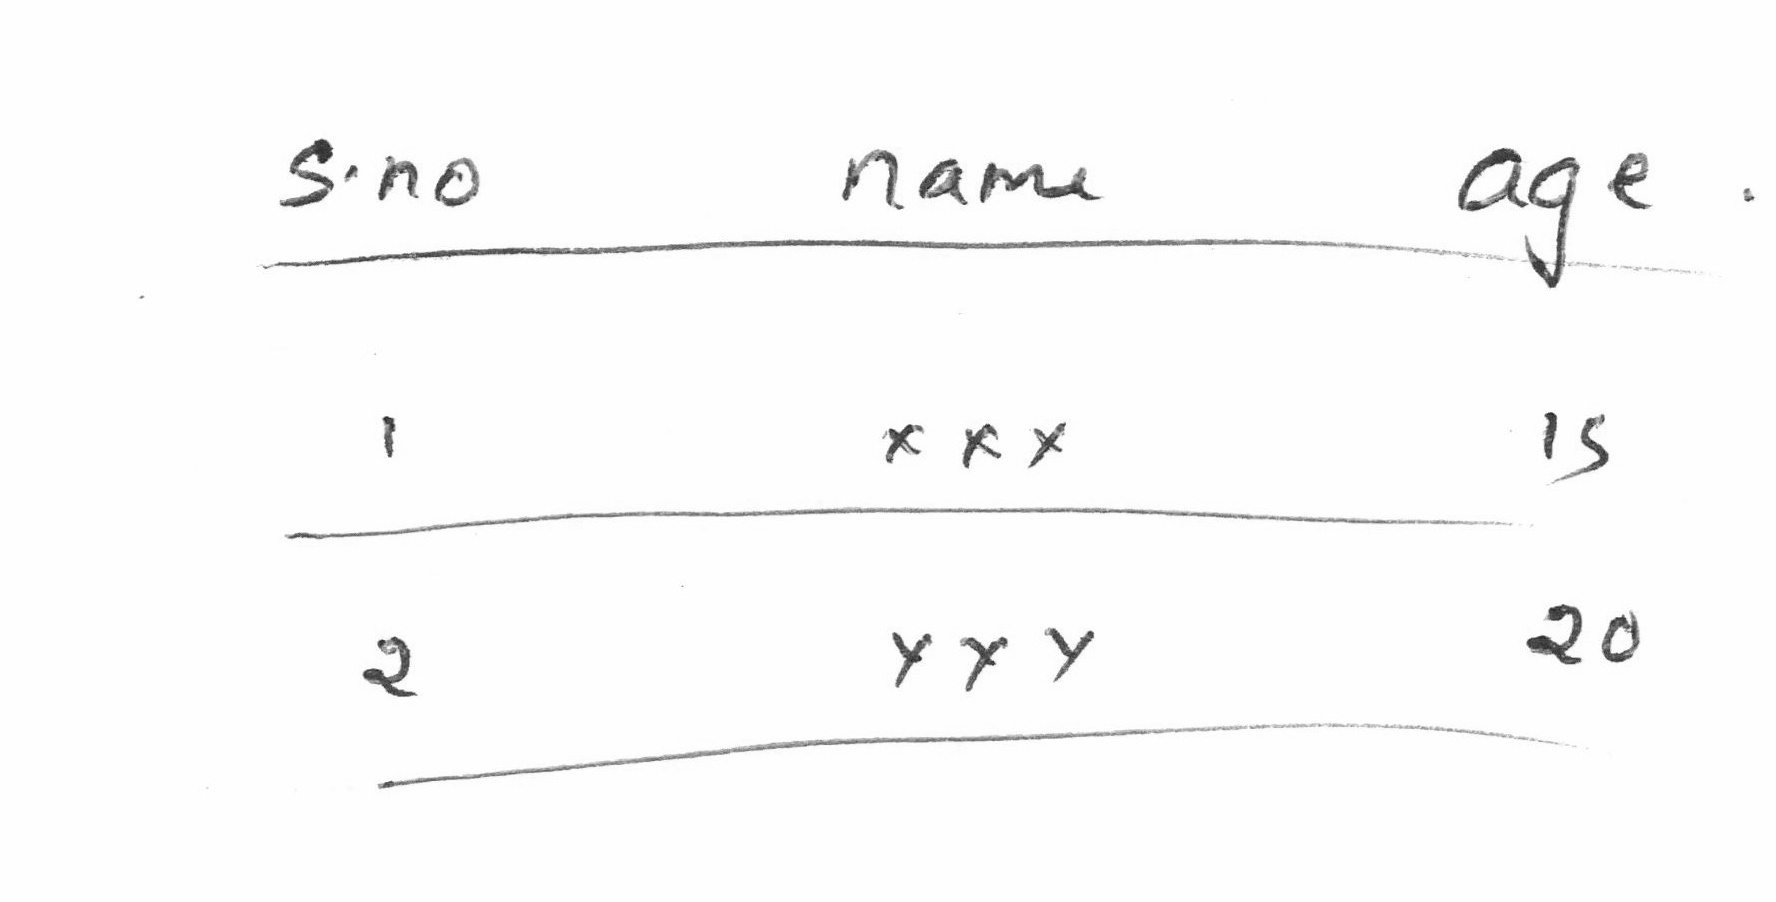 s.no name age.
1 xxx 15
2 yyy 20